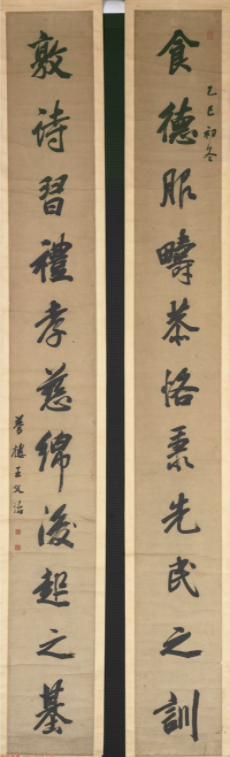 乙巳初冬
食德服疇恭恪禀先民之訓
敦詩習禮孝慈綿後起之基
夢樓王文治